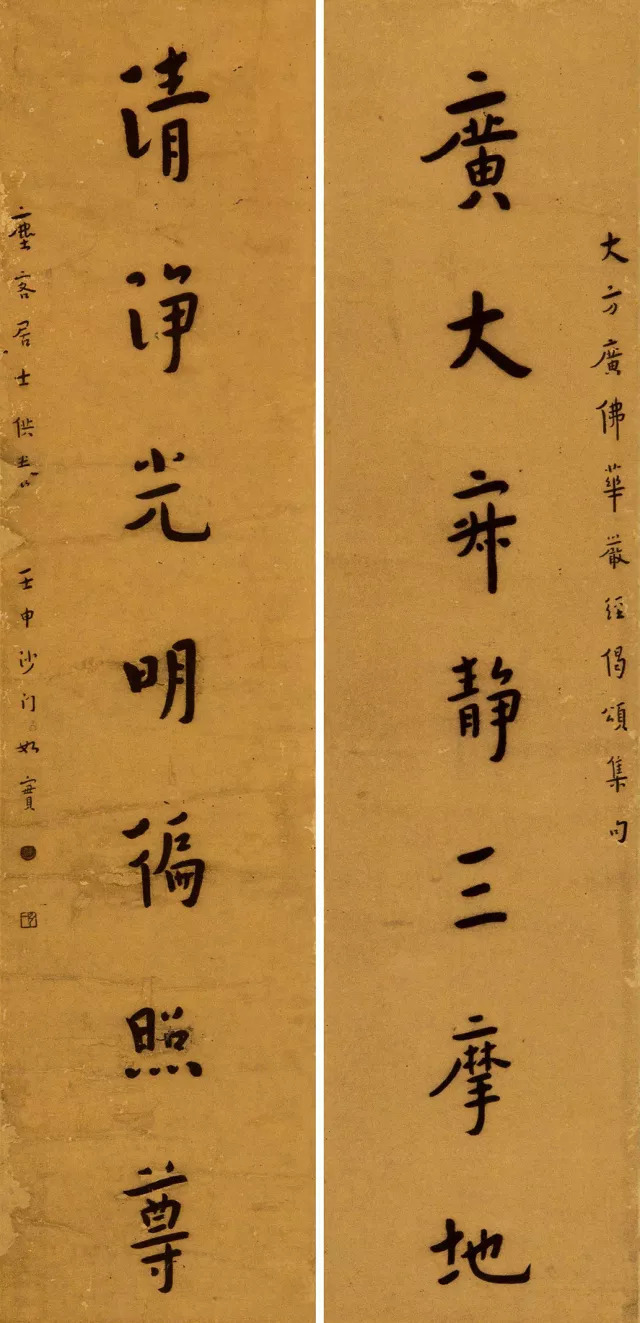 大方廣佛華嚴經偈頌集句
廣大寂静三摩地
清淨光明徧照尊
塵客居士供養 壬申沙門如實